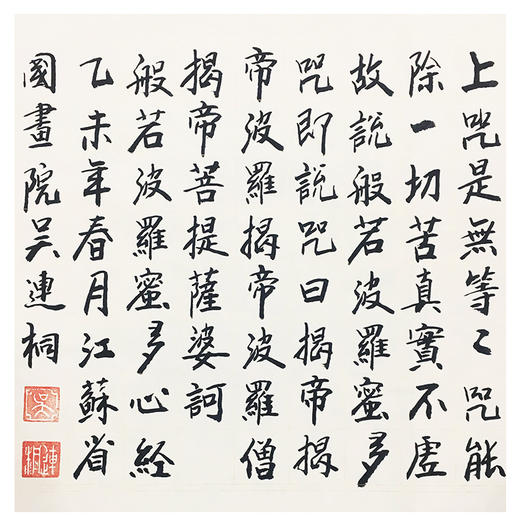 上咒是無等〻咒能
除一切苦真實不虛
故說般若波羅蜜多
咒即說咒曰揭帝揭
帝波羅揭帝波羅僧
揭帝菩提薩婆訶
般若波羅蜜多心経
乙未年春月江蘇省
國畫院吴連桐
吴
連桐